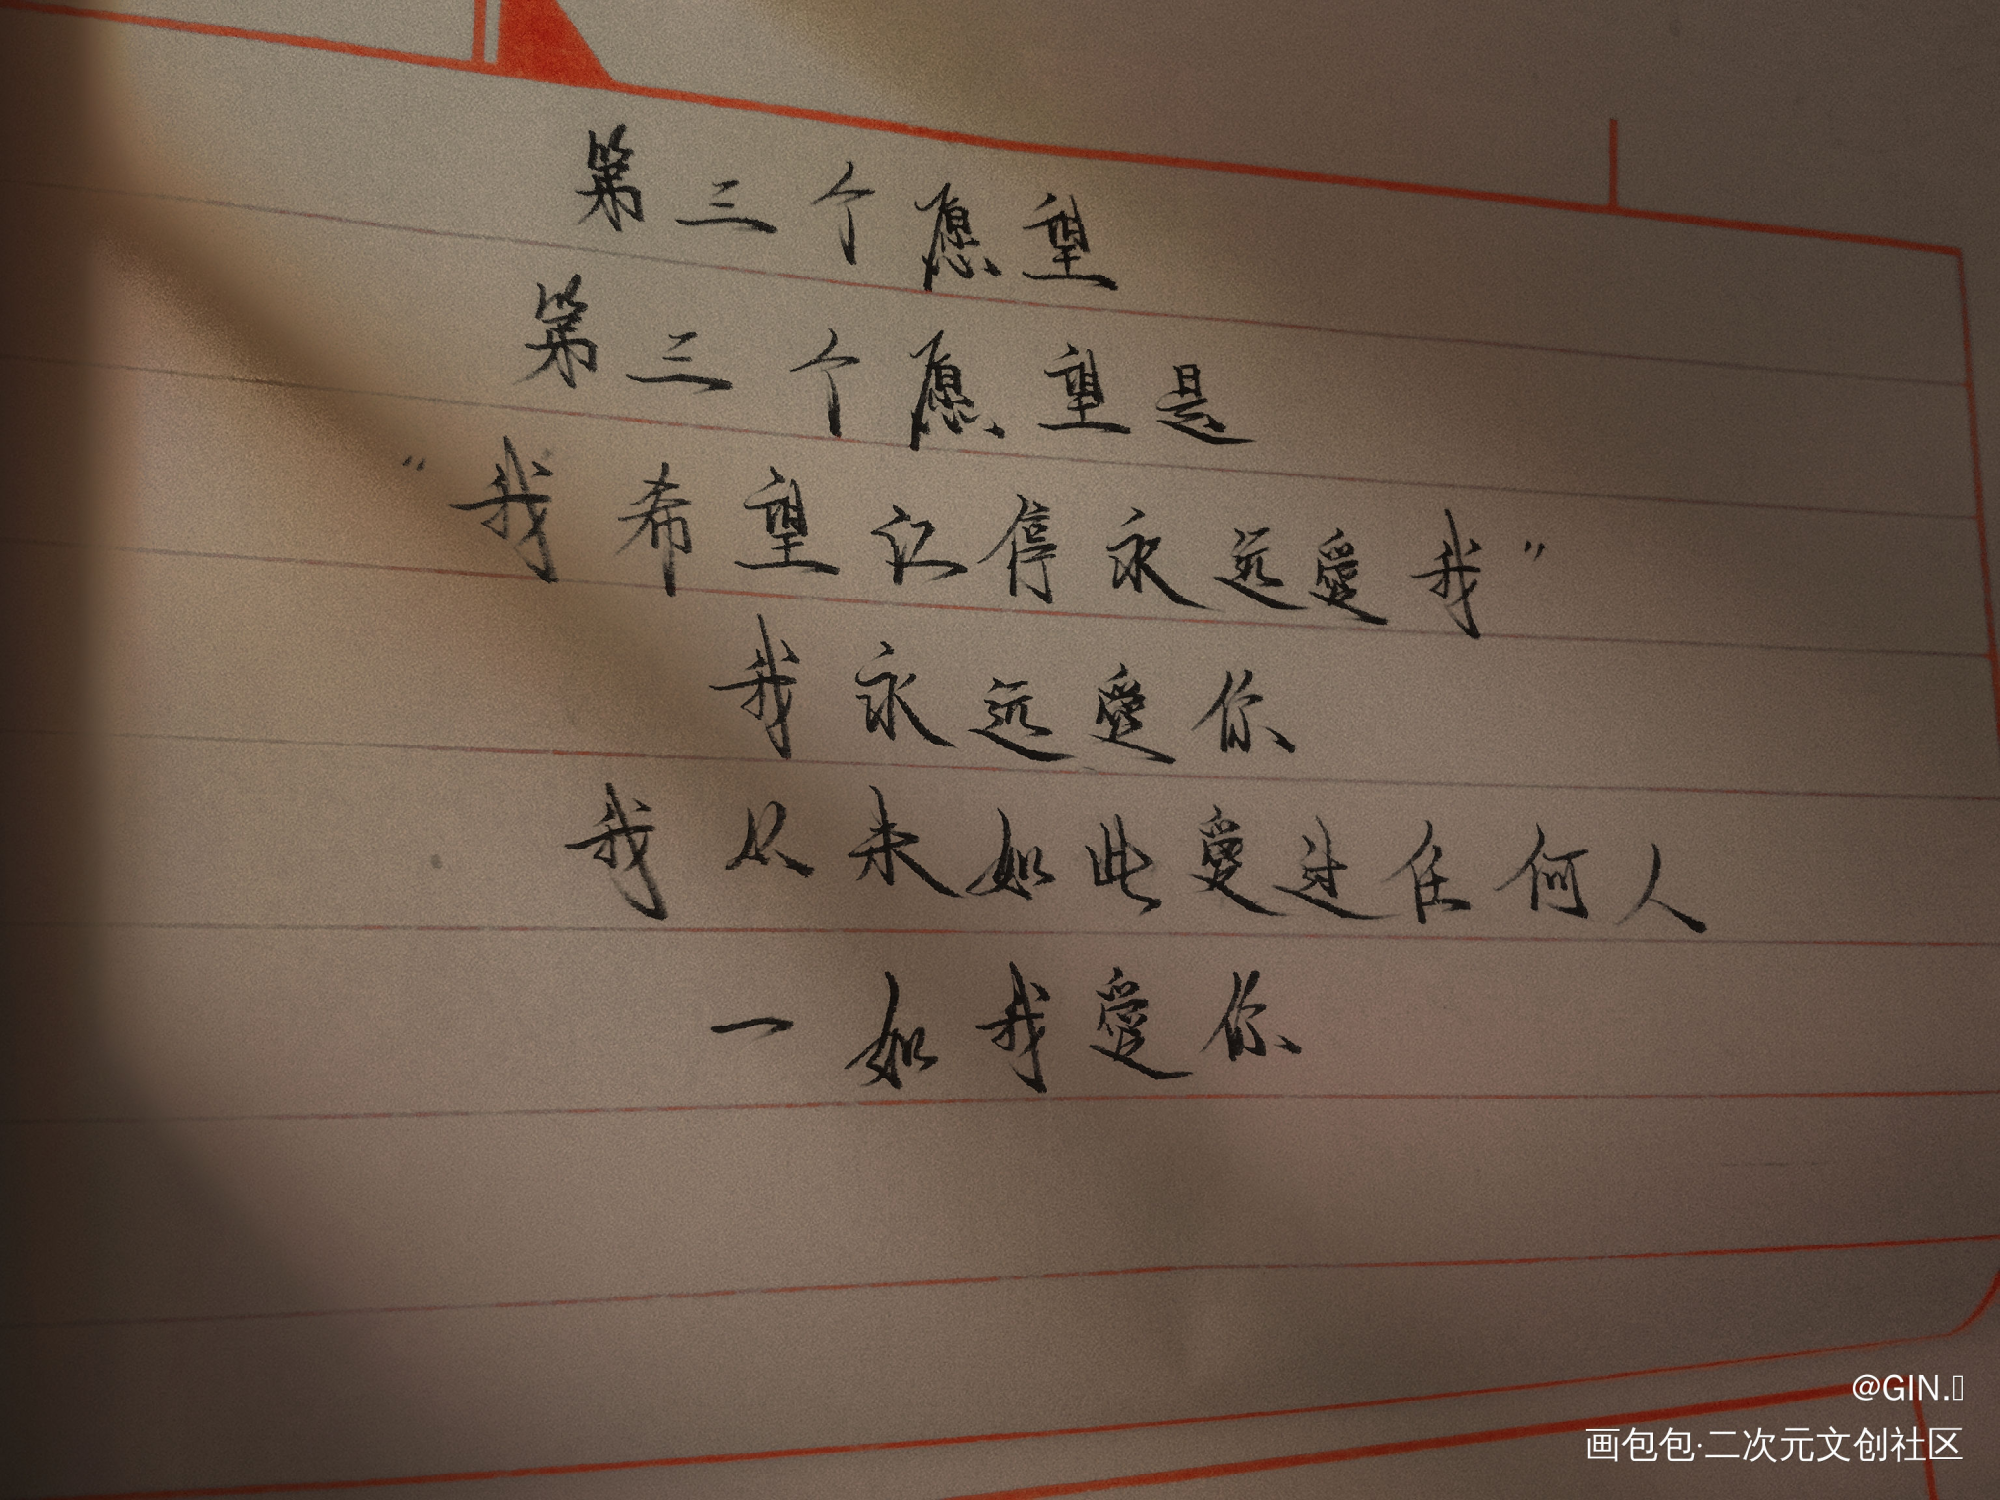 第三个愿望
第三个愿望是
“我希望江停永远愛我”
我永远愛你
我从未如此愛过任何人
一如我愛你
@GIN.
画包包·二次元文创社区